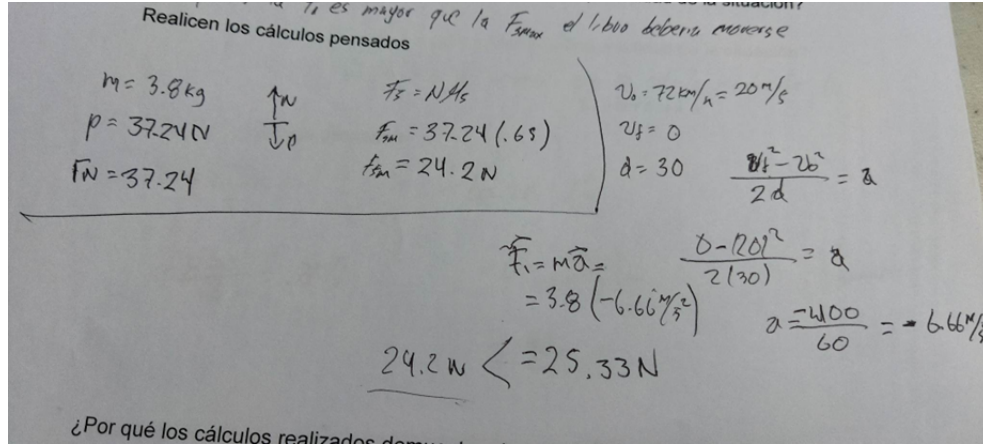 es mayor que la Fsmax el libro debería moverse
Realicen los cálculos pensados
m = 3.8 kg
P = 37.24 N
FN = 37.24
↑N
↓P
Fs = Nμs
Fsm = 37.24 (.65)
Fsm = 24.2 N
V₀ = 72 km/h = 20 m/s
Vf = 0
d = 30
Vf² - V₀² / 2d = a
0 - (20)² / 2(30) = a
a = -400 / 60 = - 6.66 m/s
F₁ = ma =
= 3.8 (-6.66 m/s²)
24.2 N < = 25.33 N
¿Por qué los cálculos realizados